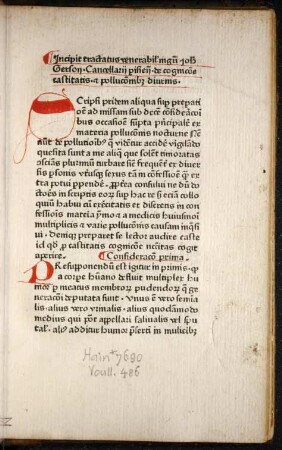 Incipit tractatus venerabil' mgr̄i Joħ
Gerson. Cancellarii pisieñ. de cognicōe
castitatis. ⁊ pollucōnibꝫ diurnis.
Cripsi pridem aliqua sup̄ p̄epati
one ad missam sub decē cōsideracōi
bus occasiōe sūpta p̄ncipale ex
materia pollucōnis nocturne
aut̄ de pollutiōibꝫ q̄ vident̄ accidē vigilādo
quesita sunt a me aliq̄ que solēt timoratas
cōsciās plurimū turbare
sis p̄sonis vtusq̄ sexus tam in cōfessiōe q̄ ex
tra potui p̄pendē. p̄terea consului
ctoēs in scriptis eoꝝ sup hac re s̄ eciā collo
quiū habui cū exercitatis et discretis in con
fessiōnis materia p̄mo ⁊ a medicis huiusmōi
multiplicis ⁊ varie pollucōnis causam inq̄si
vi. Deniqꝫ preparet se lector audire caste
id qd̄ p castitatis cognicōne
aperire. Consideracō prima.
PResupponendū est igitur in primis. q̄
a corpe hūano defluit multiplex hu
mor p meatus membroꝝ pudendoꝝ q̄ ge
neracōni deputata sunt. Vnus ē vero semia
lis. alius vero vrinalis. alius quodāmodo
medius qui pōt appellari saliualis vel spu
tal'. aliꝰ additur humor p̄sertī in mulieribꝫ
Hain* 7690
Voull. 486